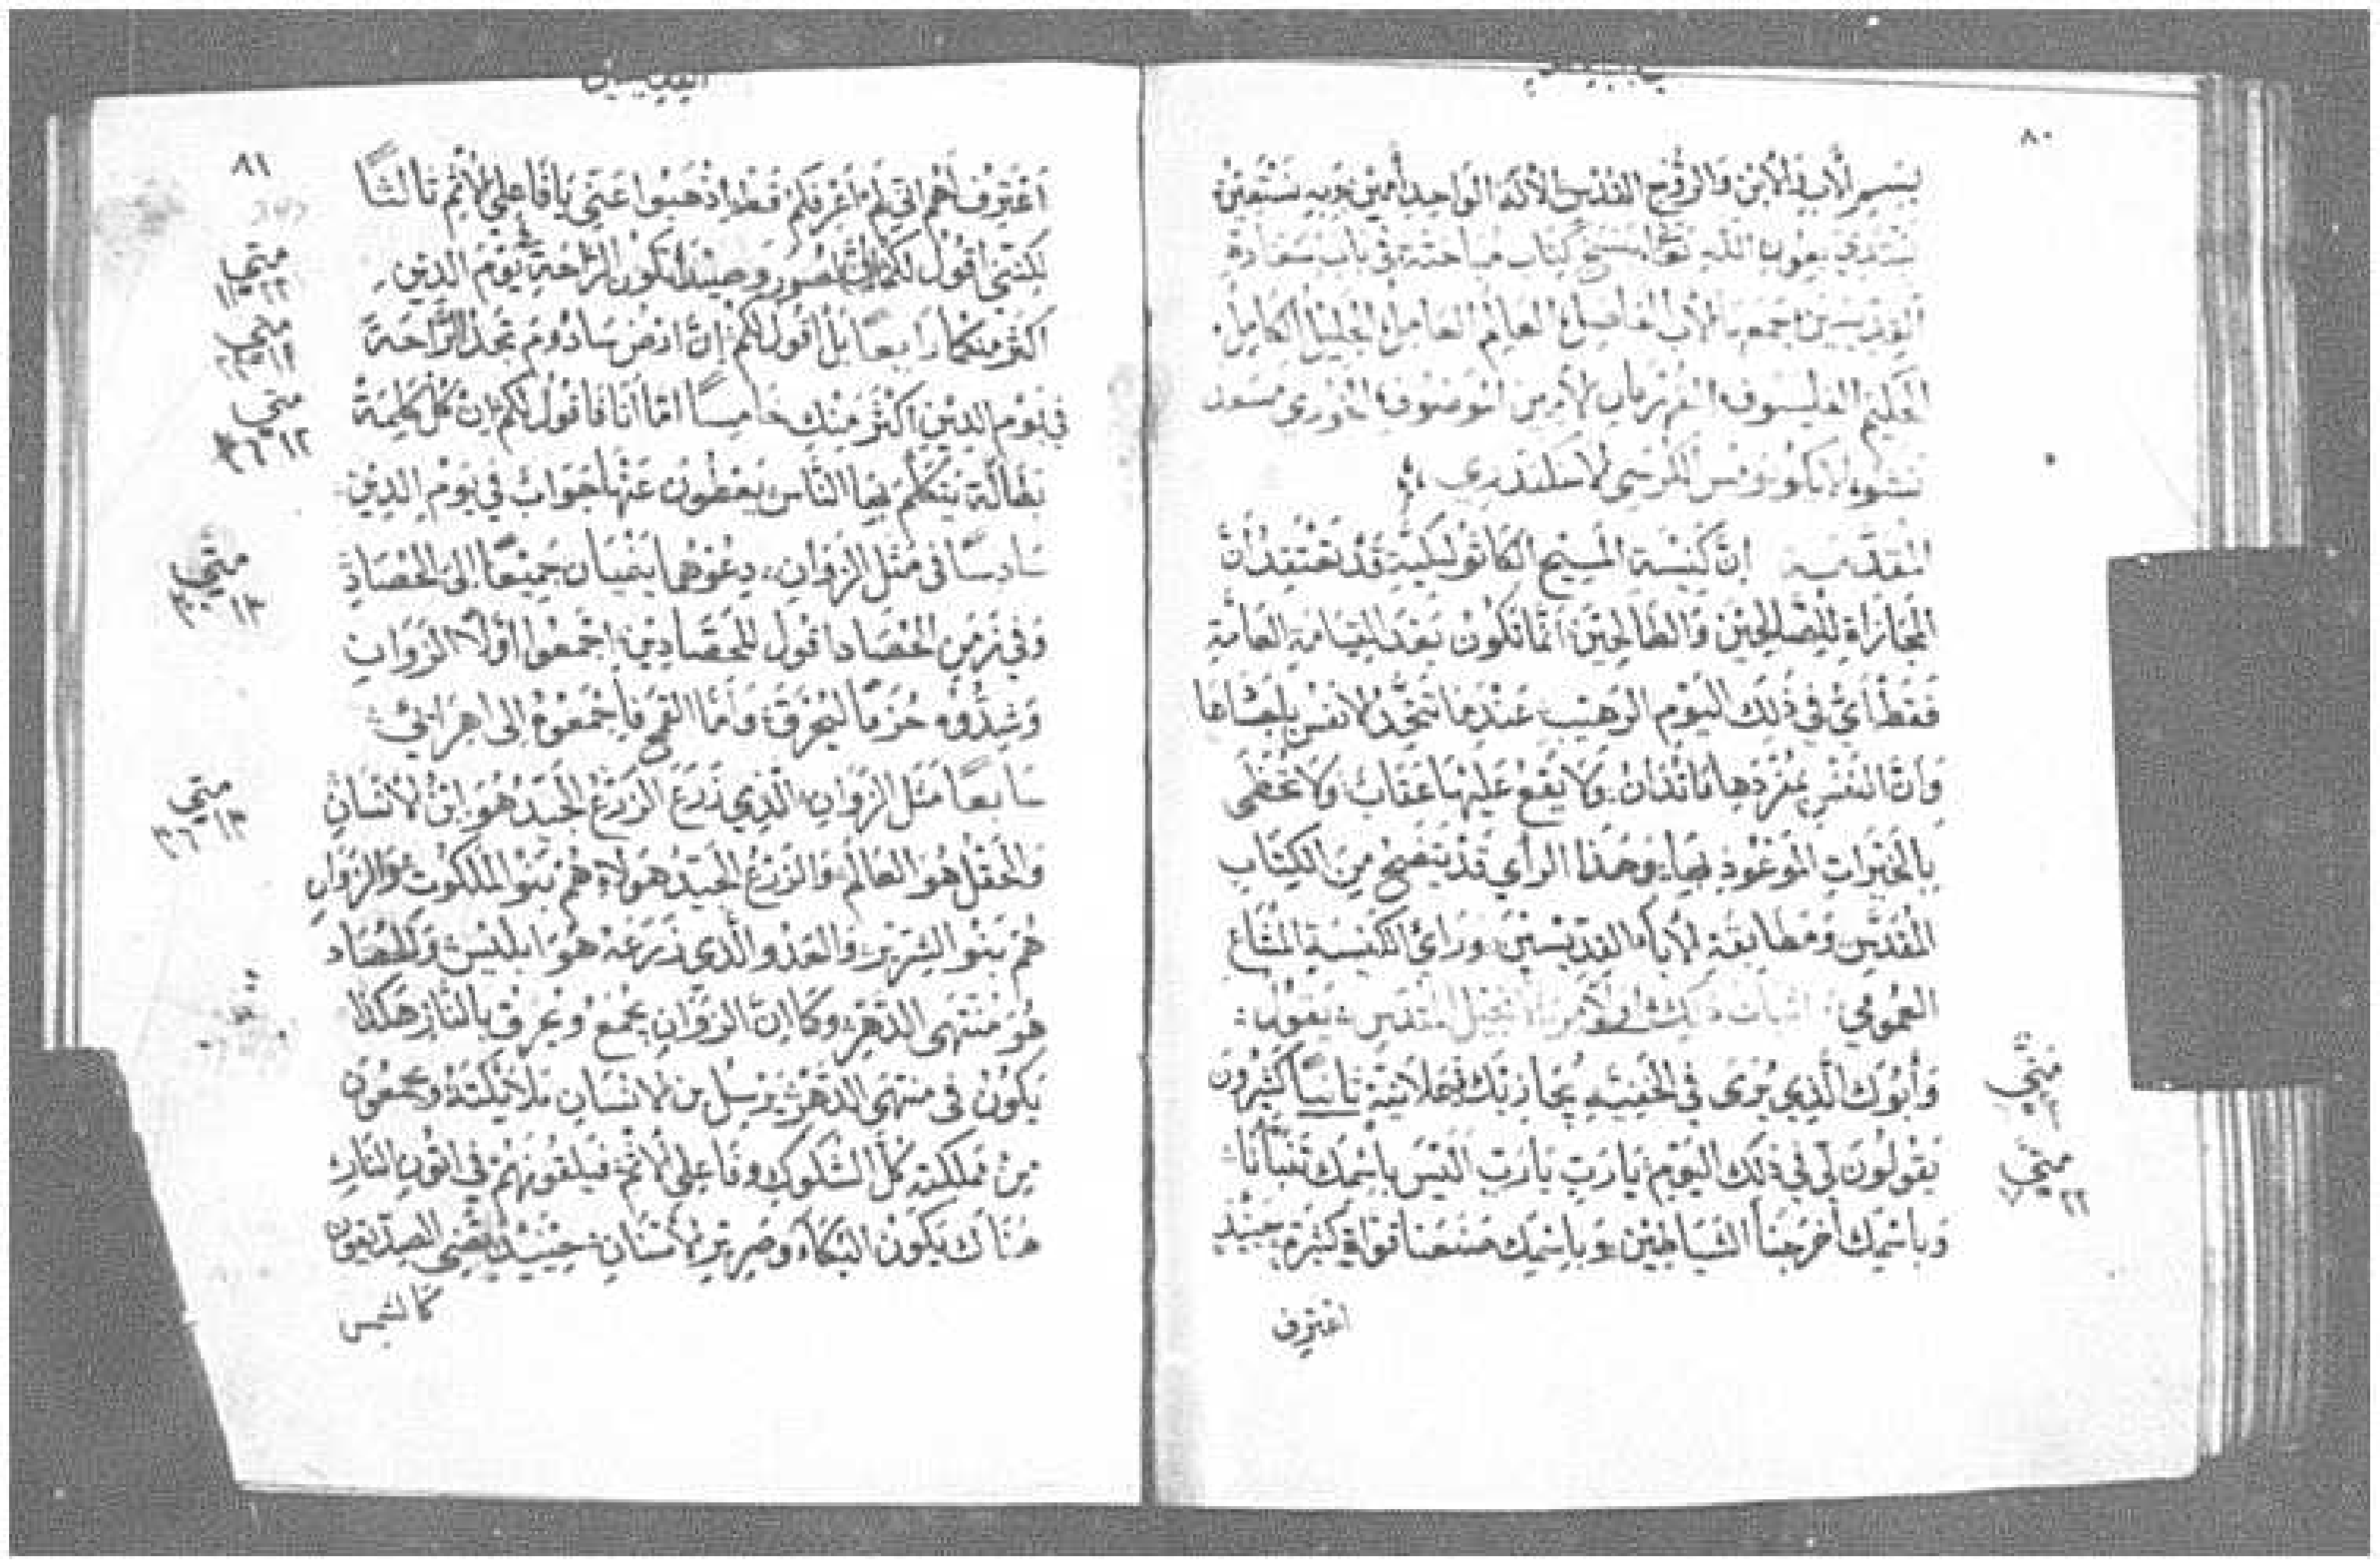 ٨٠
بِسْمِ الْآبِ وَالْاِبْنِ وَالرُّوحِ الْقُدُسِ الْالَهِ الْوَاحِدِ أَمِين وَبِهِ نَسْتَعِينُ
نبتدي بعون الله تعالى بنسخ كتاب مباحثة في باب سعادة
القديسين جمعه الاب الفاضل العالم العامل الجليل الكامل
الحليم الفيلسوف الامين الخوري مسعد
نشوه المرسى الاسكندري
المقدمه ان كنيسة المسيح الكاثوليكية قد تعتقد ان
المجازاة للصالحين والطالحين انما تكون بعد القيامة العامة
فقط أي في ذلك اليوم الرهيب عندما تتحد الانفس باجسادها
وان النفس بمفردها ولا يقع عليها عقاب ولا تحظى
بالخيرات الموعود بها وهذا الراي قد يتضح من الكتاب
المقدس ومطابقة الأباء القديسين وراى الكنيسة المشاع
العمومي اثبات ذلك اولا من الانجيل المقدس يقول
وأبوك الذي يرى في الخفيه يجازيك علانية ثانيا كثيرون
يقولون لي في ذلك اليوم يا رب يا رب اليس باسمك تنبأنا
وباسمك أخرجنا الشياطين وباسمك صنعنا قواة كثيرة حينيذ
اعترف
متى
٦
متى
٧ ٢٢
القديسين
٨١
اعترف لهم اني لم اعرفكم قط اذهبوا عني يا فاعلي الاثم ثالثا
لكنني اقول لكم ان لصور وصيدا تكون الراحة يوم الدين
اكثر منكما رابعا بل اقول لكم إن ارض سادوم تجد الراحة
في يوم الدين اكثر منك خامسا اما أنا فاقول لكم ان كل كلمة
بطالة يتكلم بها الناس يعطون عنها جواب في يوم الدين
سادسا في مثل الزوان دعوهما ينميان جميعا الى الحصاد
وفي زمن الحصاد اقول للحصادين اجمعوا اولا الزوان
وشدوه حزما ليحرق واما القمح فاجمعوه إلى اهرائي
سابعا مثل الزوان الذي زرع الزرع الجيد هو ابن الانسان
والحقل هو العالم والزرع الجيد هولاء هم بنو الملكوت والزوان
هم بنو الشرير والعدو الذي زرعه هو ابليس والحصاد
هو منتهى الدهر وكما ان الزوان يجمع ويحرق بالنار هكذا
يكون في منتهى الدهر يرسل بن الانسان ملائكته ويجمعون
من مملكته كل الشكوك وفاعلي الاثم فيلقونهم في اتون النار
هناك يكون البكاء وصرير الاسنان حينيذ يضي الصديقون
كالشمس
متى
متى
متى
١٢ ٣٦
متى
١٣
متى
١٣